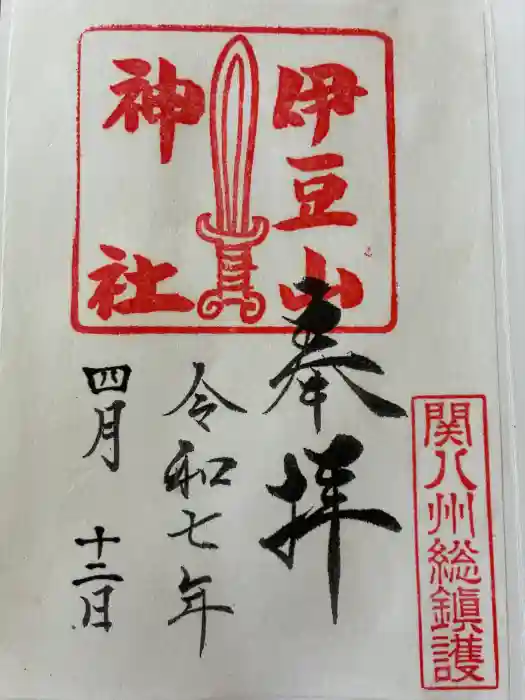 関八州総鎮護
伊豆山
神社
奉拝
令和七年
四月十二日